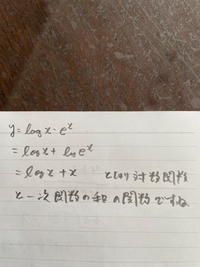 y = log x · e^x
= log x + ln e^x
= log x + x という対数関数
と一次関数の和の関数ですね